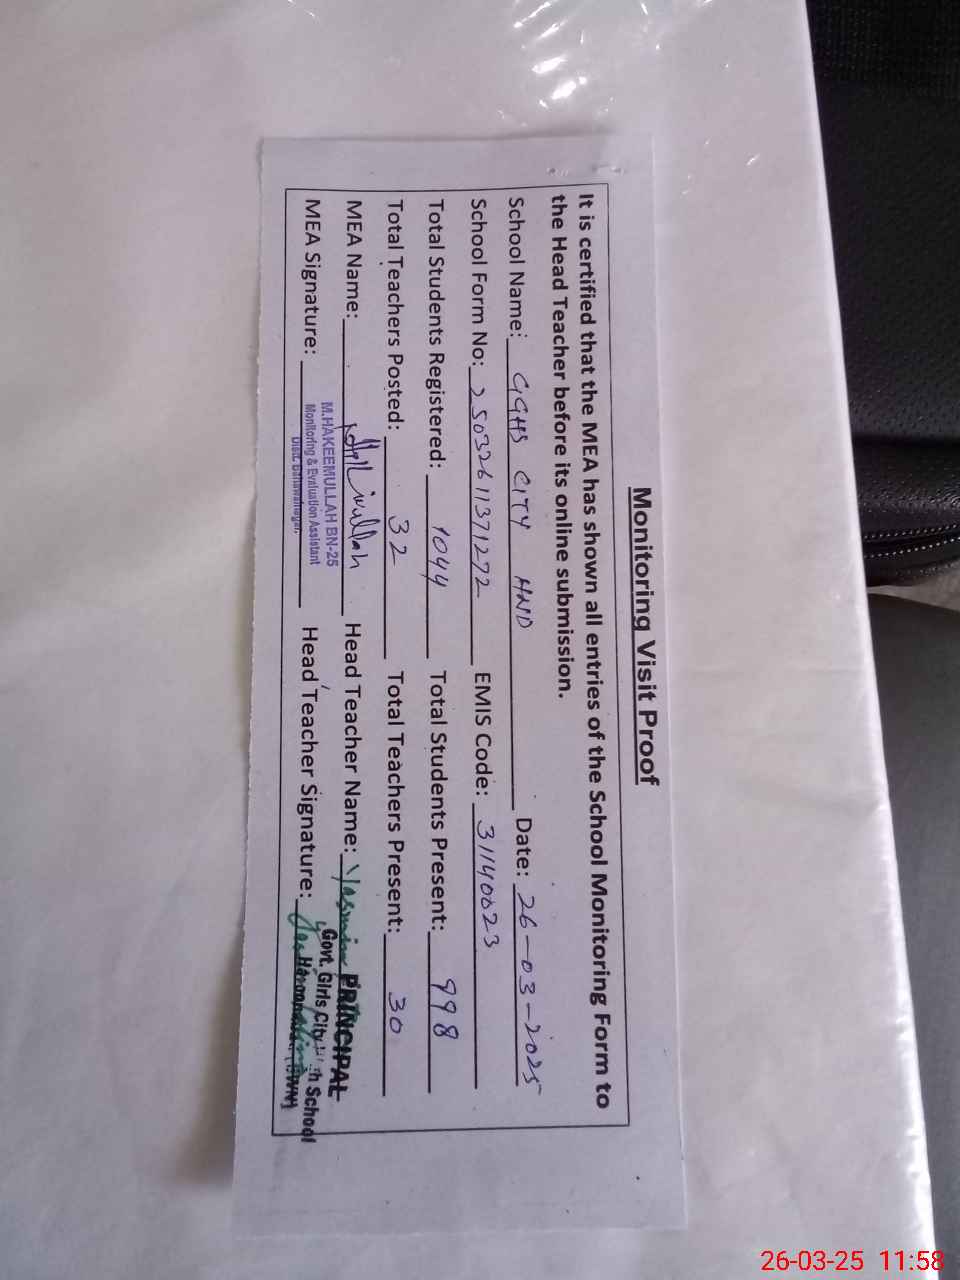 Monitoring Visit Proof
It is certified that the MEA has shown all entries of the School Monitoring Form to
the Head Teacher before its online submission.
School Name: GGHS CITY HND Date: 26-03-2025
School Form No: 25032611371272 EMIS Code: 31140023
Total Students Registered: 1044 Total Students Present: 998
Total Teachers Posted: 32 Total Teachers Present: 30
MEA Name: Head Teacher Name: Yasmin
PRINCIPAL
MEA Signature: Head Teacher Signature:
M.HAKEEMULLAH BN-25
Monitoring & Evaluation Assistant
Distt. Bahawalnagar.
Govt. Girls City High School
26-03-25 11:58